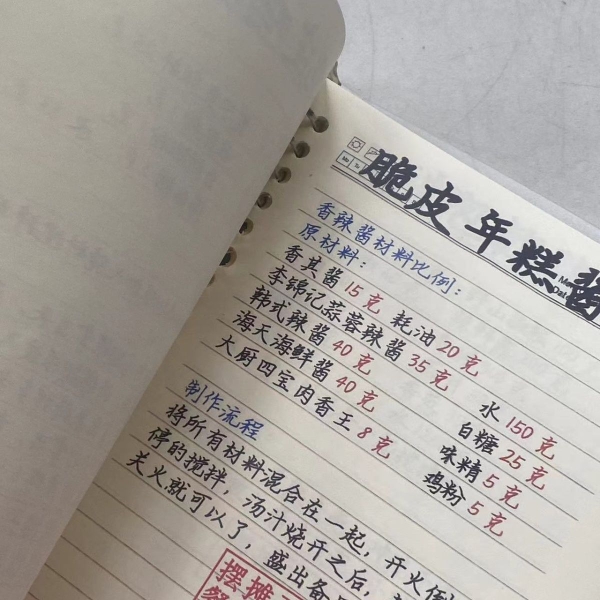 脆皮年糕酱
香辣酱材料比例：
原材料：
香其酱15克 耗油20克
李锦记蒜蓉辣酱35克 水150克
韩式辣酱40克 白糖25克
海天海鲜酱40克 味精5克
大厨四宝肉香王8克 鸡粉5克
制作流程
将所有材料混合在一起，开火倒
停的搅拌，汤汁烧开之后，
关火就可以了，盛出备
摆摊